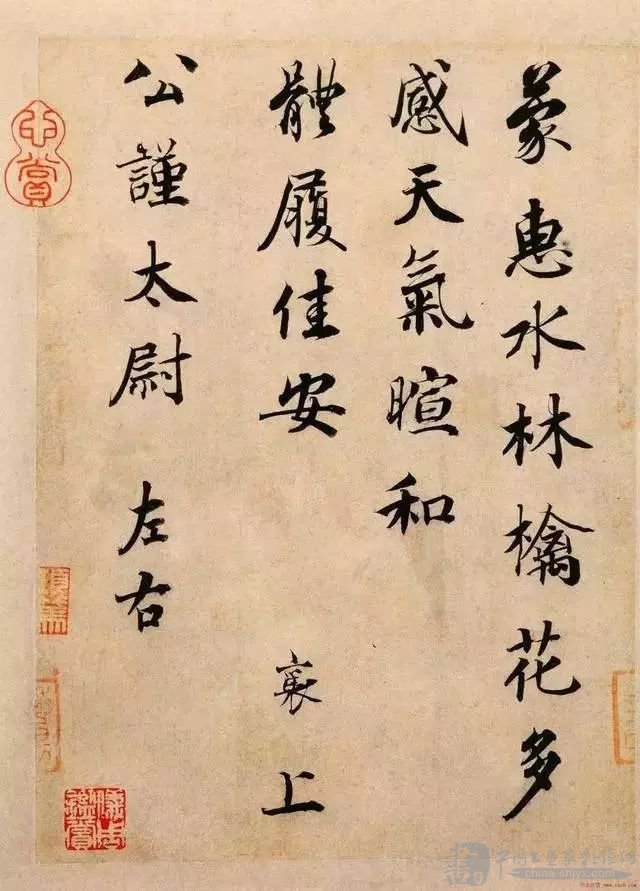 蒙惠水林檎花多
感天氣暄和
體履佳安
襄上
公謹太尉
左右
china-shjyx.com